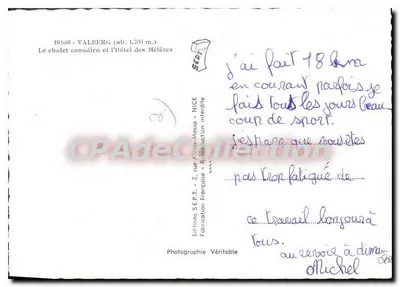 10508 - VALBERG (alt. 1.700 m.)
Le chalet canadien et l'Hôtel des Mélèzes
SEPT
Editions S.E.P.T. - 2, rue - NICE
Fabrication Française - Reproduction interdite
Photographie Véritable
CPAdeCollection
j'ai fait 18 km
en courant parfois je
fais tous les jours beau
coup de sport.
j'espère que vous êtes
pas trop fatigué de
ce travail bonjour à
tous.
au revoir à
Michel